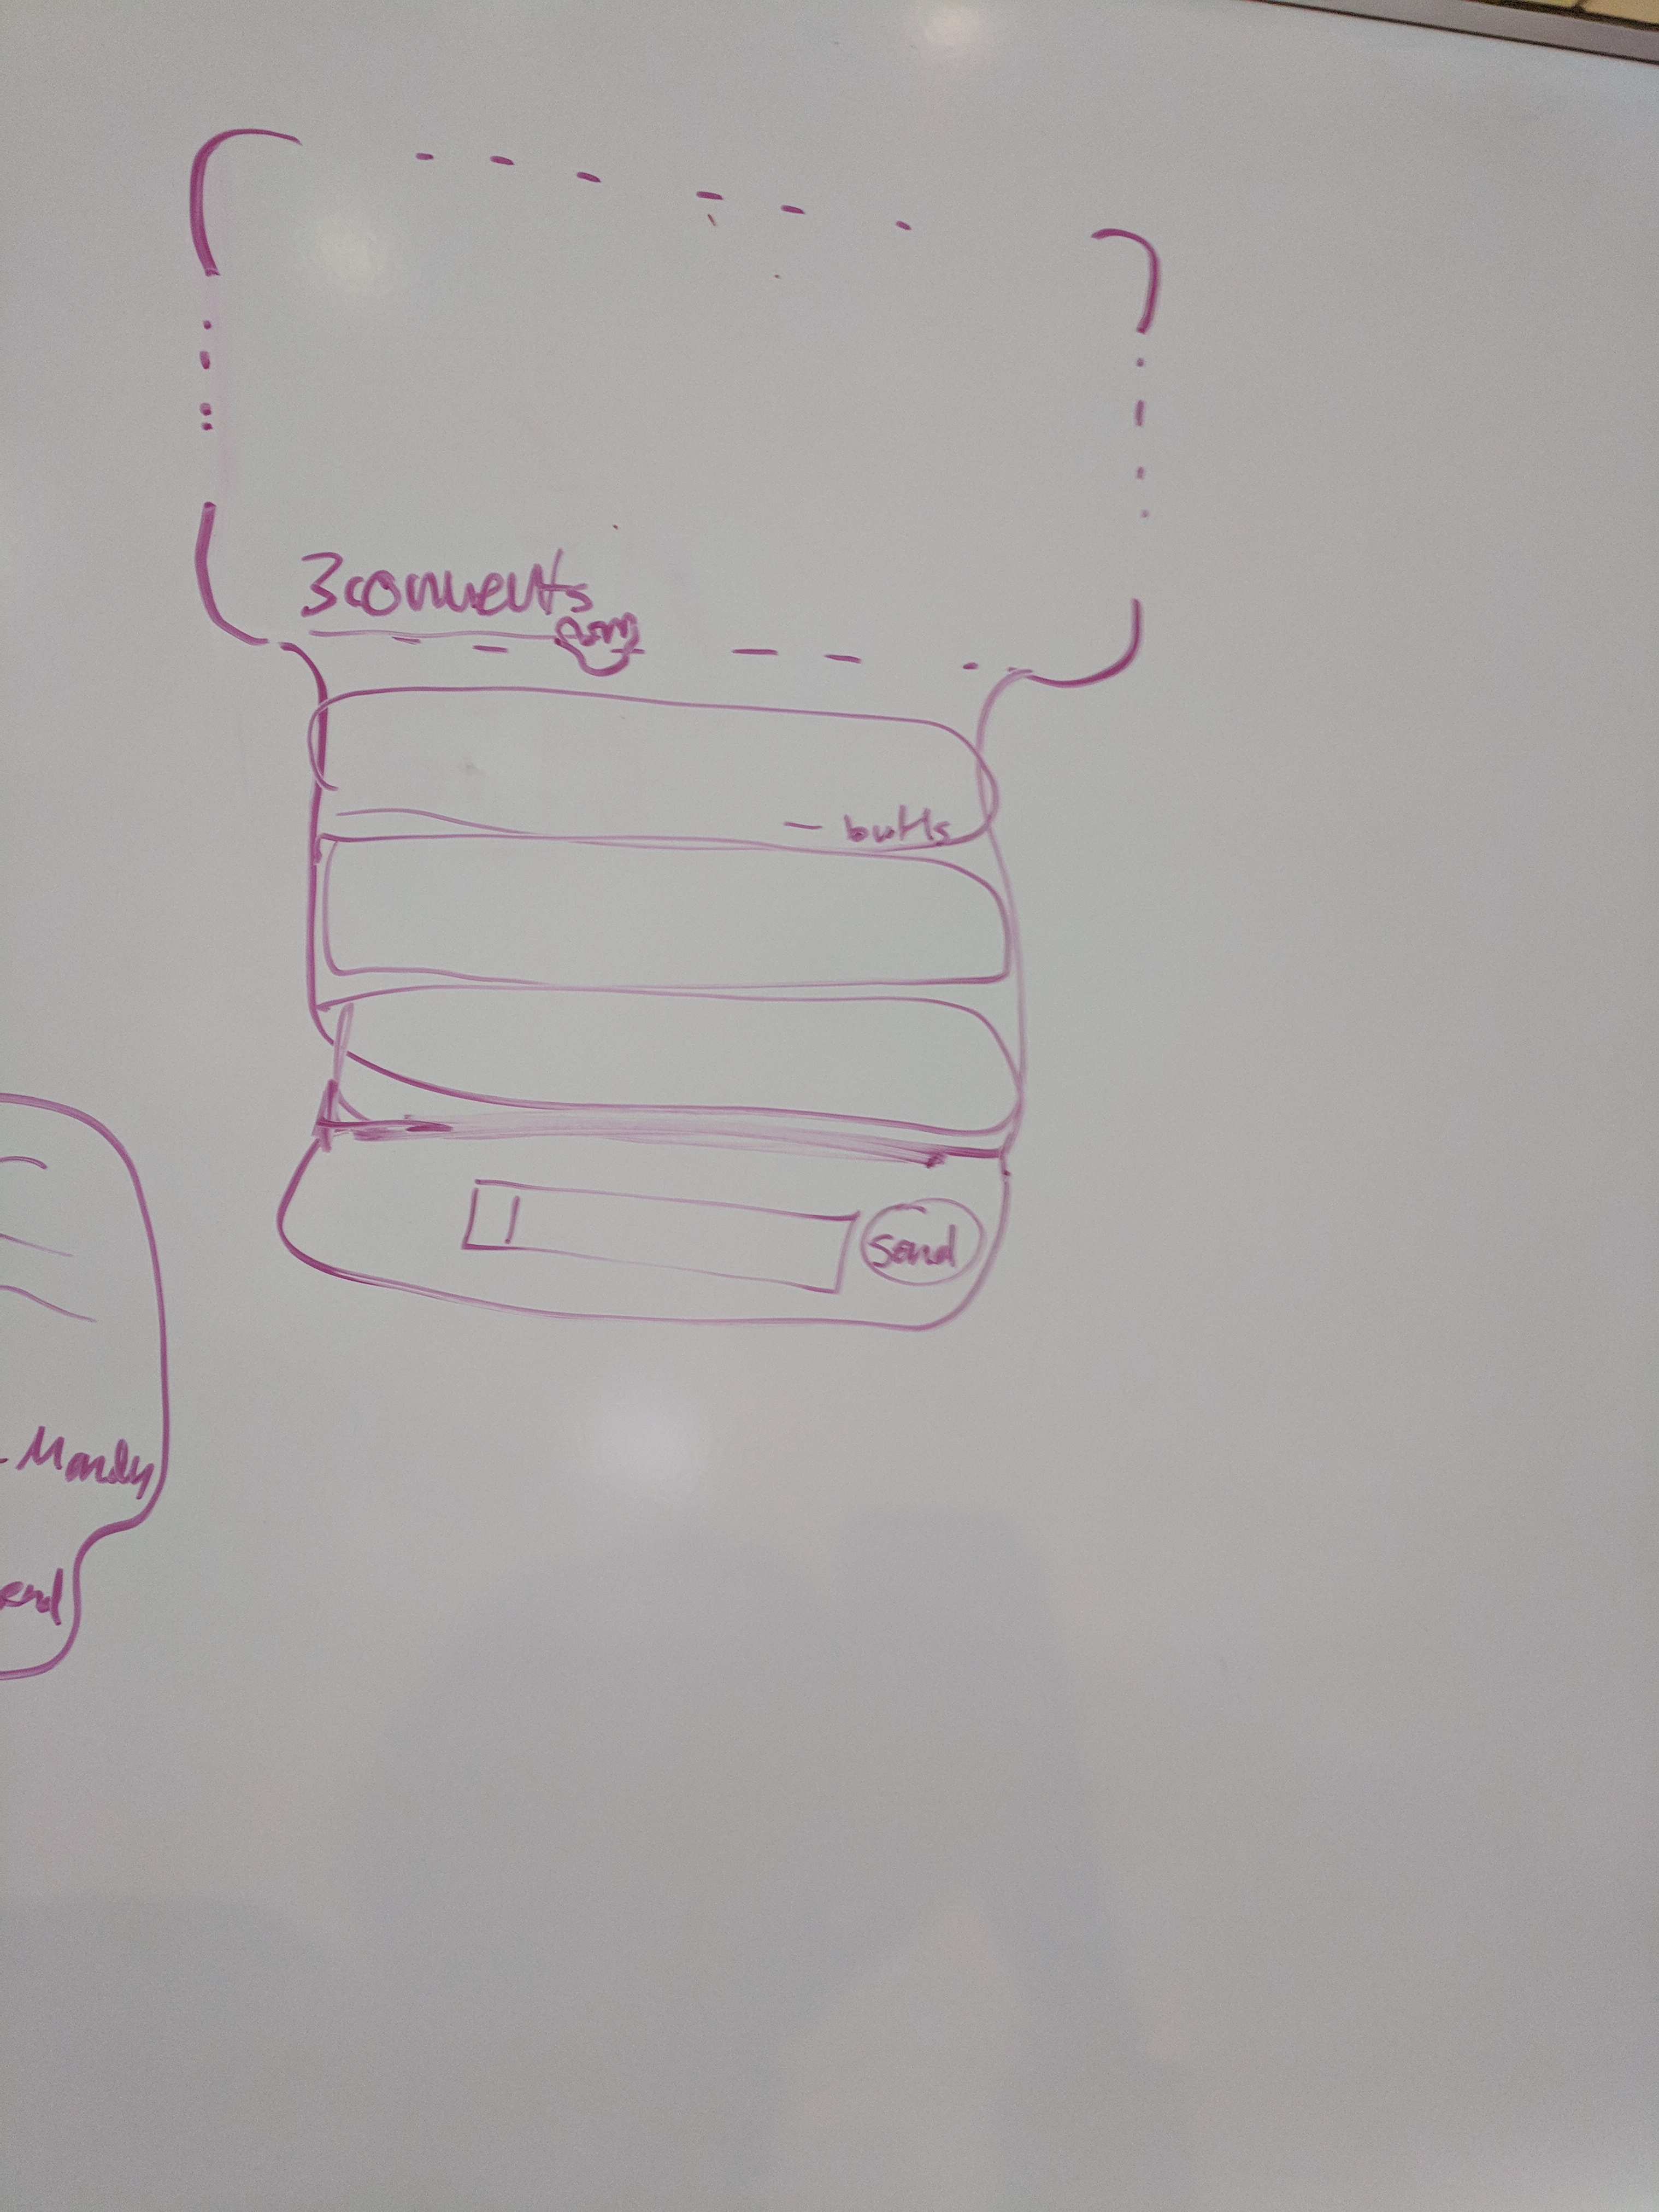 3 comments
- butts
send
- Mandy
end